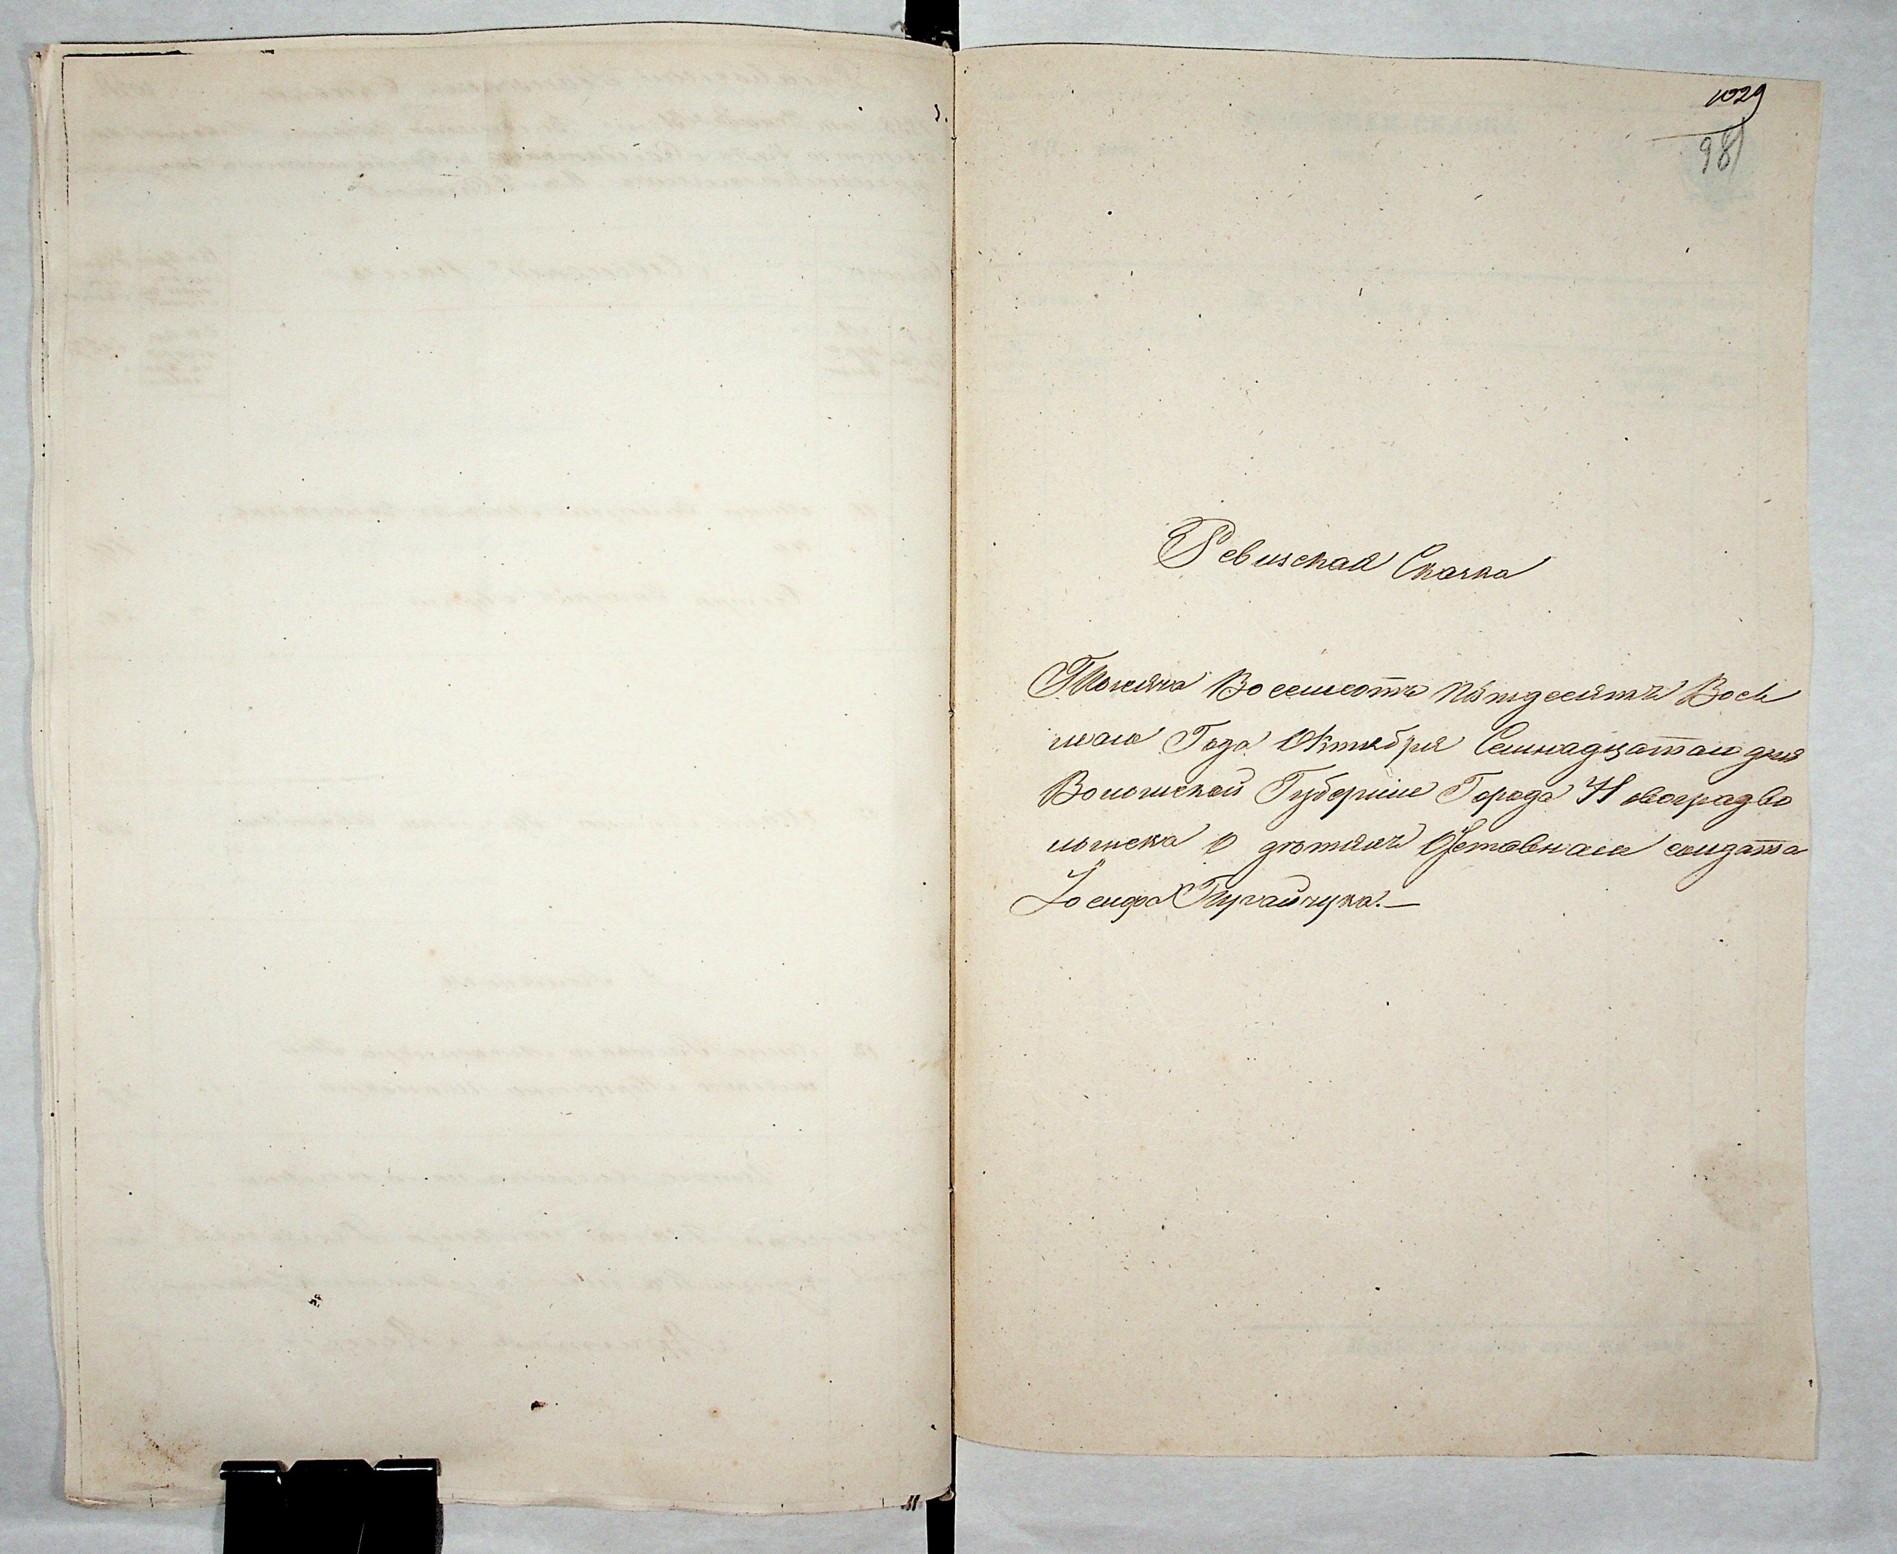 1029
98
Ревизская Сказка
Тысяча Восемсотъ пятдесятъ Вось
маго Года Октября Семнадцатаго дня
Волынской Губернии Города Новоградво
лынска о дѣтяхъ Отставнаго солдата
Іосифа Пугайчука.—